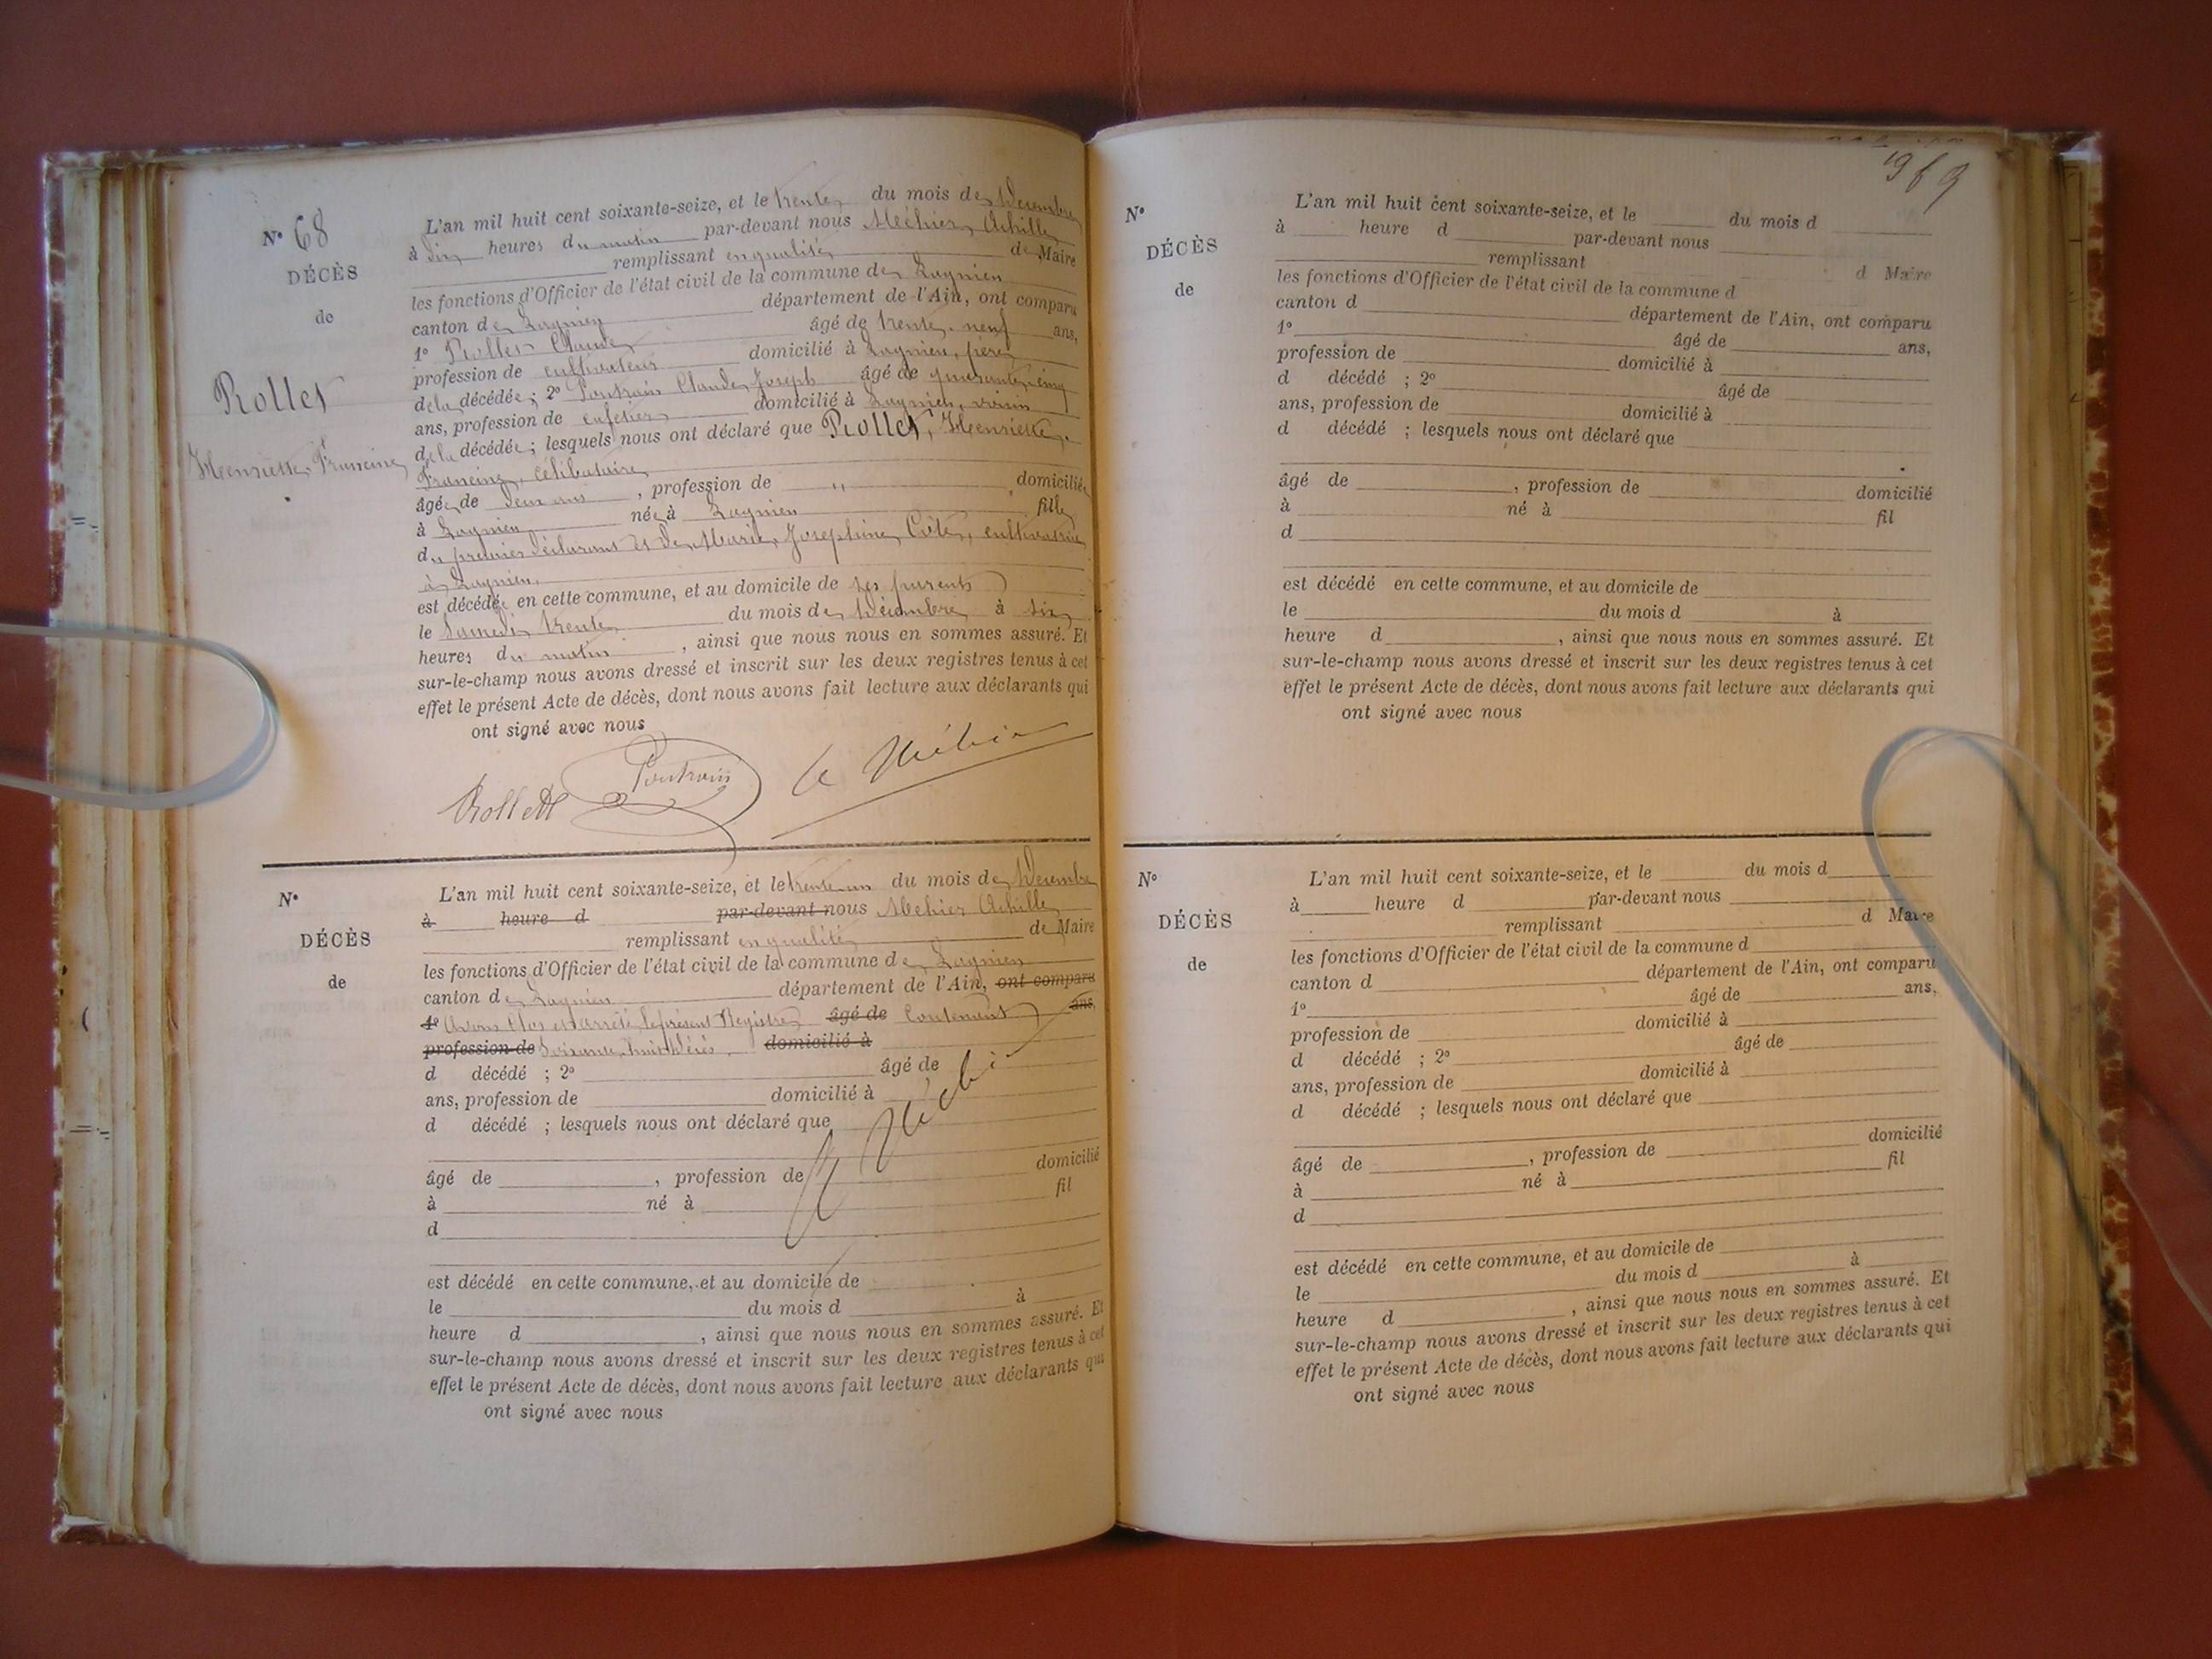 N° 68
DÉCÈS
de
Rollet
Henriette Francine
L'an mil huit cent soixante-seize, et le trente du mois de Décembre
à dix heures du matin par-devant nous Méhier Achille
remplissant en qualité de Maire
les fonctions d'Officier de l'état civil de la commune de Lagnieu
canton de Lagnieu département de l'Ain, ont comparu
1° Rollet Claude âgé de trente-neuf ans,
profession de cultivateur domicilié à Lagnieu, père
de la décédée ; 2° Claude Joseph âgé de quarante-cinq
ans, profession de cafetier domicilié à Lagnieu, voisin
de la décédée ; lesquels nous ont déclaré que Rollet, Henriette
Francine, célibataire
âgée de deux ans , profession de " domiciliée
à Lagnieu née à Lagnieu fille
du premier déclarant et de Marie Josephine Côte, cultivatrice
à Lagnieu,
est décédée en cette commune, et au domicile de ses parents
le Samedi trente du mois de Décembre à six
heures du matin , ainsi que nous nous en sommes assuré. Et
sur-le-champ nous avons dressé et inscrit sur les deux registres tenus à cet
effet le présent Acte de décès, dont nous avons fait lecture aux déclarants qui
ont signé avec nous
Rollet A. Méhier
N°
DÉCÈS
de
L'an mil huit cent soixante-seize, et le trente-un du mois de Décembre
à heure d par-devant nous Méhier Achille
remplissant en qualité de Maire
les fonctions d'Officier de l'état civil de la commune de Lagnieu
canton de Lagnieu département de l'Ain, ont comparu
1° Avons Clos et arrêté le présent Registre âgé de Contenant ans,
profession de Soixante-huit Décès. domicilié à
d décédé ; 2° âgé de
ans, profession de domicilié à
d décédé ; lesquels nous ont déclaré que
A. Méhier
âgé de , profession de domicilié
à né à fil
d
est décédé en cette commune, et au domicile de
le du mois d à
heure d , ainsi que nous nous en sommes assuré. Et
sur-le-champ nous avons dressé et inscrit sur les deux registres tenus à cet
effet le présent Acte de décès, dont nous avons fait lecture aux déclarants qui
ont signé avec nous
969
N°
DÉCÈS
de
L'an mil huit cent soixante-seize, et le du mois d
à heure d par-devant nous
remplissant d Maire
les fonctions d'Officier de l'état civil de la commune d
canton d département de l'Ain, ont comparu
1° âgé de ans,
profession de domicilié à
d décédé ; 2° âgé de
ans, profession de domicilié à
d décédé ; lesquels nous ont déclaré que
âgé de , profession de domicilié
à né à fil
d
est décédé en cette commune, et au domicile de
le du mois d à
heure d , ainsi que nous nous en sommes assuré. Et
sur-le-champ nous avons dressé et inscrit sur les deux registres tenus à cet
effet le présent Acte de décès, dont nous avons fait lecture aux déclarants qui
ont signé avec nous
N°
DÉCÈS
de
L'an mil huit cent soixante-seize, et le du mois d
à heure d par-devant nous
remplissant d Maire
les fonctions d'Officier de l'état civil de la commune d
canton d département de l'Ain, ont comparu
1° âgé de ans,
profession de domicilié à
d décédé ; 2° âgé de
ans, profession de domicilié à
d décédé ; lesquels nous ont déclaré que
âgé de , profession de domicilié
à né à fil
d
est décédé en cette commune, et au domicile de
le du mois d à
heure d , ainsi que nous nous en sommes assuré. Et
sur-le-champ nous avons dressé et inscrit sur les deux registres tenus à cet
effet le présent Acte de décès, dont nous avons fait lecture aux déclarants qui
ont signé avec nous